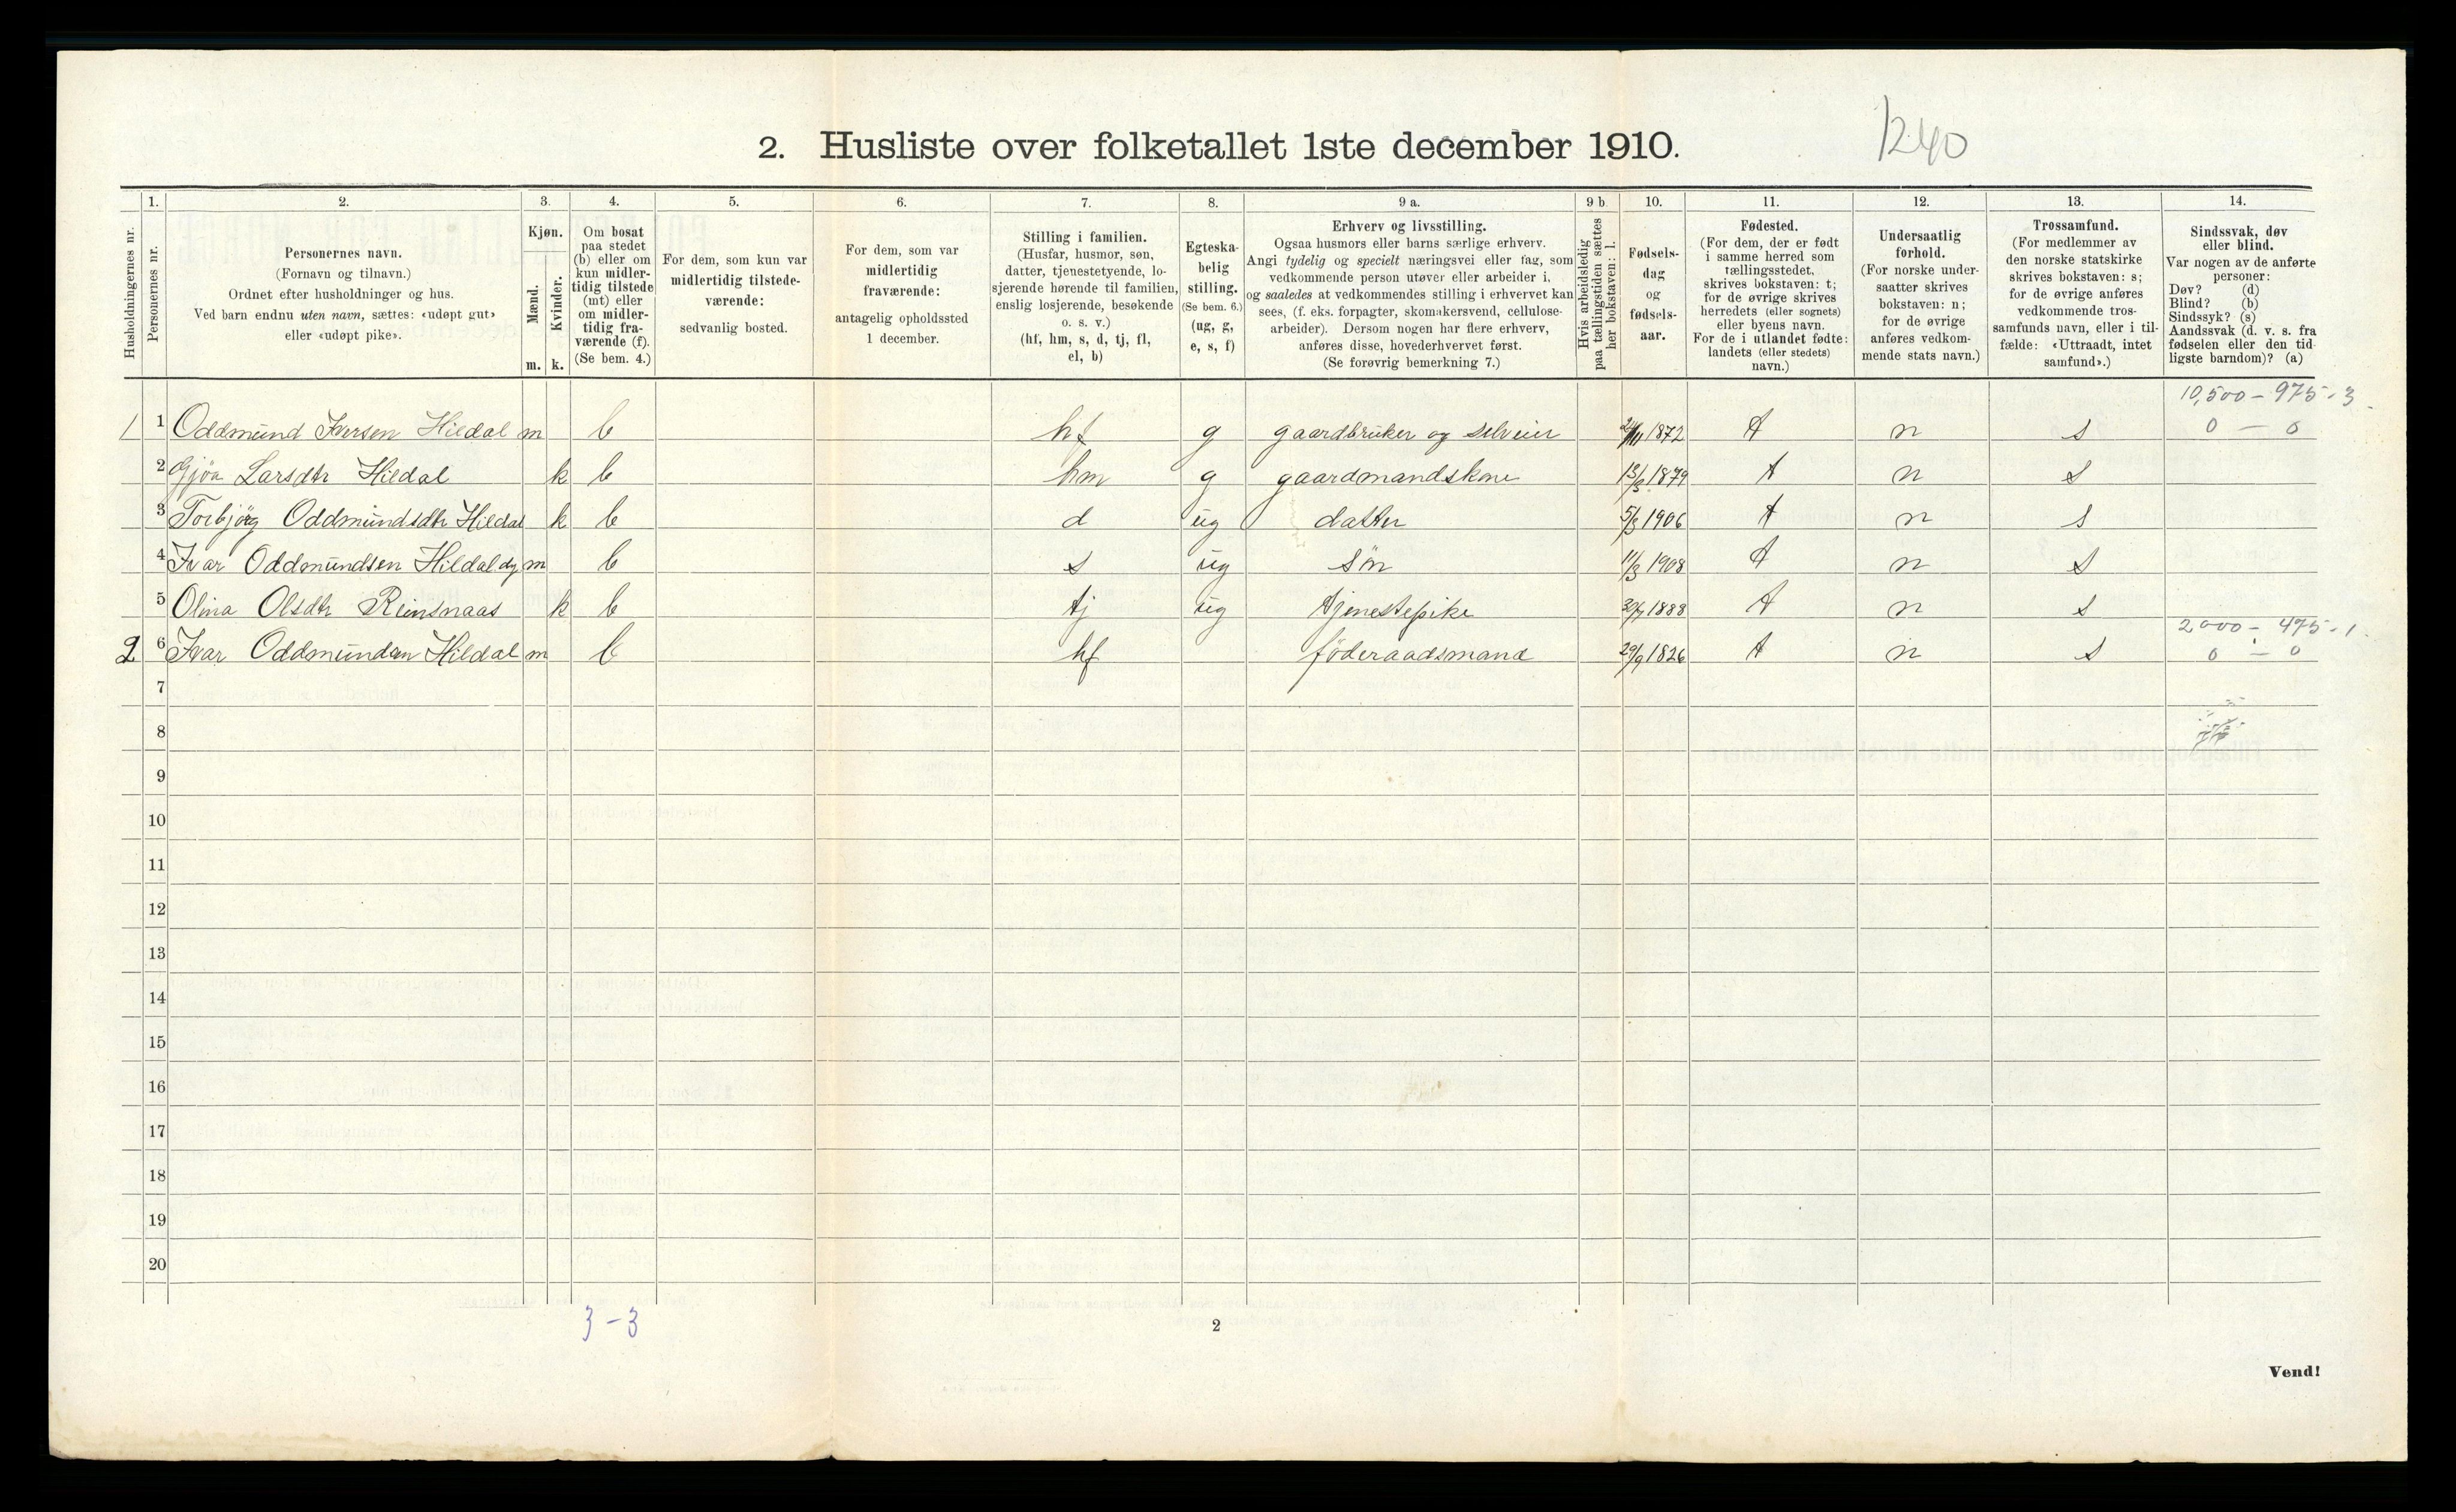 2. Husliste over folketallet 1ste december 1910.
1240
Husholdningernes nr.
1.
Personernes nr.
2.
Personernes navn.
(Fornavn og tilnavn.)
Ordnet efter husholdninger og hus.
Ved barn endnu uten navn, sættes: «udøpt gut»
eller «udøpt pike».
3.
Kjøn.
Mænd.
Kvinder.
m. k.
4.
Om bosat
paa stedet
(b) eller om
kun midler-
tidig tilstede
(mt) eller
om midler-
tidig fra-
værende (f).
(Se bem. 4.)
5.
For dem, som kun var
midlertidig tilstede-
værende:
sedvanlig bosted.
6.
For dem, som var
midlertidig
fraværende:
antagelig opholdssted
1 december.
7.
Stilling i familien.
(Husfar, husmor, søn,
datter, tjenestetyende, lo-
sjerende hørende til familien,
enslig losjerende, besøkende
o. s. v.)
(hf, hm, s, d, tj, fl,
el, b)
8.
Egteska-
belig
stilling.
(Se bem. 6.)
(ug, g,
e, s, f)
9 a.
Erhverv og livsstilling.
Ogsaa husmors eller barns særlige erhverv.
Angi tydelig og specielt næringsvei eller fag, som
vedkommende person utøver eller arbeider i,
og saaledes at vedkommendes stilling i erhvervet kan
sees, (f. eks. forpagter, skomakersvend, cellulose-
arbeider). Dersom nogen har flere erhverv,
anføres disse, hovederhvervet først.
(Se forøvrig bemerkning 7.)
9 b.
Hvis arbeidsledig
paa tællingstiden sættes
her bokstaven: l.
10.
Fødsels-
dag
og
fødsels-
aar.
11.
Fødested.
(For dem, der er født
i samme herred som
tællingsstedet,
skrives bokstaven: t;
for de øvrige skrives
herredets (eller sognets)
eller byens navn.
For de i utlandet fødte:
landets (eller stedets)
navn.)
12.
Undersaatlig
forhold.
(For norske under-
saatter skrives
bokstaven: n;
for de øvrige
anføres vedkom-
mende stats navn.)
13.
Trossamfund.
(For medlemmer av
den norske statskirke
skrives bokstaven: s;
for de øvrige anføres
vedkommende tros-
samfunds navn, eller i til-
fælde: «Uttraadt, intet
samfund».)
14.
Sindssvak, døv
eller blind.
Var nogen av de anførte
personer:
Døv? (d)
Blind? (b)
Sindssyk? (s)
Aandssvak (d. v. s. fra
fødselen eller den tid-
ligste barndom)? (a)
10,500 – 975 - 3
1 1 Oddmund Iversen Hildal m b hf g gaardbruker og selveier 1872 t n s 0 – 0
2 Gjøa Larsdtr Hildal k b hm g gaardmandskone 13/3 1879 t n s
3 Torbjörg Oddmundsdtr Hildal k b d ug datter 5/3 1906 t n s
4 Ivar Oddmundsen Hildal dy m b s ug sön 11/3 1908 t n s
5 Olina Olsdtr Reinsnaas k b tj ug tjenestepike 1888 t n s
2000 – 475 - 1
2 6 Ivar Oddmundsen Hildal m b hf föderaadsmand 29/9 1826 t n s 0 – 0
7
8
9
10
11
12
13
14
15
16
17
18
19
20
3 - 3
2
Vend!